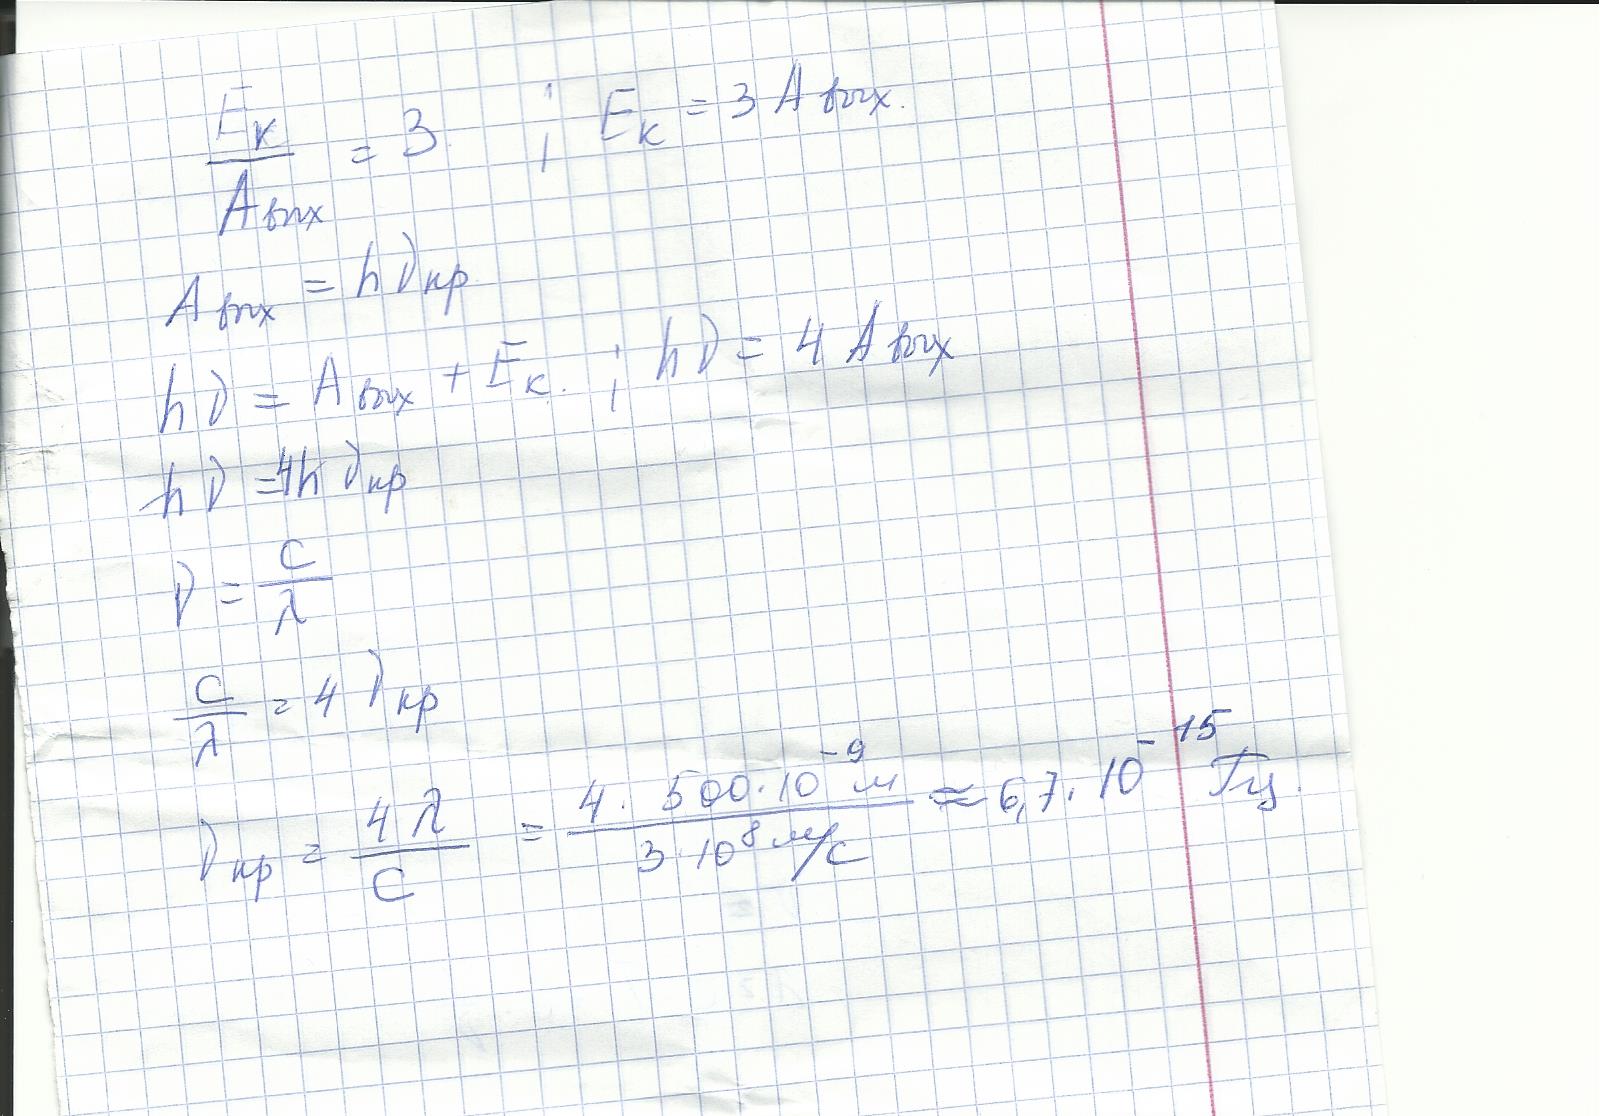 Eк / Aвых = 3 ; Eк = 3 Aвых.
Aвых = hνкр
hν = Aвых + Eк. ; hν = 4 Aвых
hν = 4hνкр
ν = c / λ
c / λ = 4 νкр
νкр = 4 λ / c = 4 · 500 · 10⁻⁹ м / 3 · 10⁸ м/с ≈ 6,7 · 10⁻¹⁵ Гц.